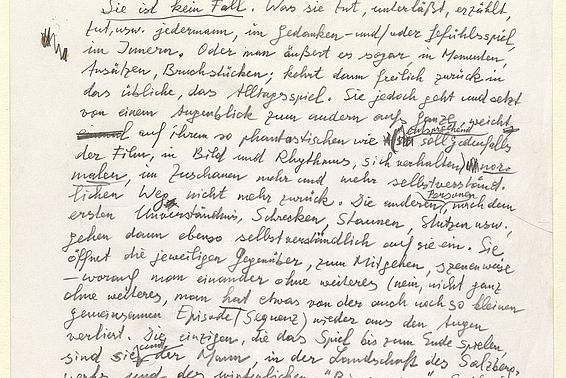 Sie ist kein Fall. Was sie tut, unterläßt, erzählt,
tut, usw. jedermann, im Gedanken- und/oder Gefühlsspiel,
im Innern. Oder man äußert es sogar, in Momenten,
Ansätzen, Bruchstücken; kehrt dann freilich zurück in
das übliche, das Alltagsspiel. Sie jedoch geht und setzt
von einem Augenblick zum andern aufs Ganze, weicht
auf ihrem so phantastischen wie
entsprechend soll jedenfalls
der Film, in Bild und Rhythmus, sich verhalten) nor-
malen, im Zuschauen mehr und mehr selbstverständ-
lichen Weg nicht mehr zurück. Die anderen Personen, nach dem
ersten Unverständnis, Schrecken, Staunen, Stutzen usw.,
gehen dann ebenso selbstverständlich auf sie ein. Sie
öffnet die jeweiligen Gegenüber, zum Mitgehen, szenenweise
– worauf man einander ohne weiteres (nein, nicht ganz
ohne weiteres, man hat etwas von der auch noch so kleinen
gemeinsamen Episode/Sequenz) wieder aus den Augen
verliert. Die einzigen, die das Spiel bis zum Ende spielen,
sind sie und der Mann, in der Landschaft des Salzberg-
werks und des winterlichen